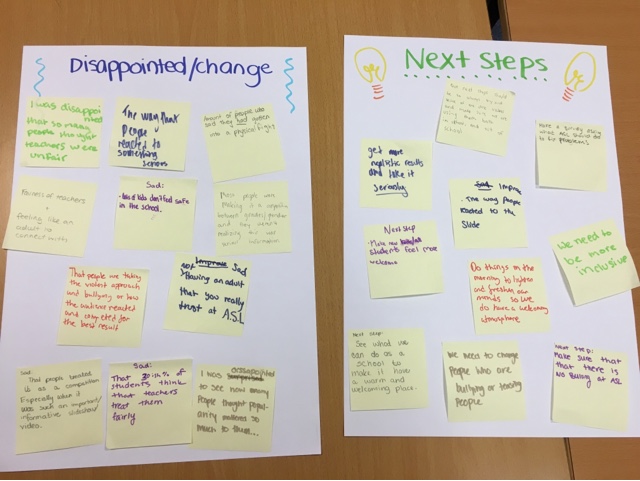 Disappointed/change
I was disappoi
nted
that so many
people thought
teachers were
unfair
The way that
People
reacted to
something
serious
Amount of people who
said they had gotten
into a physical fight
Fairness of teachers
+
feeling like an
adult
Sad:
- lots of kids don't feel safe
in the school.
Most people were
making it a
between gender/
and they weren't
realising this was
That people are taking
the violent approach
and bullying or how
the watcher reacted and
competed for
the best result
Improve Sad
not having an adult
that you really
trust at A.S.L
Sad:
That people treated
this as a competition
Especially when it
was such an important/
informative slideshow/
video.
Sad:
That % of
students think
that teachers
treat them
fairly
I was disappointed
to see how many
People thought popul-
arity matters so
much to them...
Next Steps
get more
realistic results
and take it
seriously
Have a survey asking
what ASL should do
to fix problems
Improve
. The way people
reacted to the
Slide
Next step
students feel more
welcome
We need to
be more
inclusive
Do things in the
morning to lighten
and freshen our
minds so we
do have a welcoming
atmosphere
Next step:
See what we
can do as a
school to
make it have
a warm and
welcoming place.
We need to change
People who are
bullying or teasing
people
Next Step:
Make sure that
that there is
no bullying at ASL